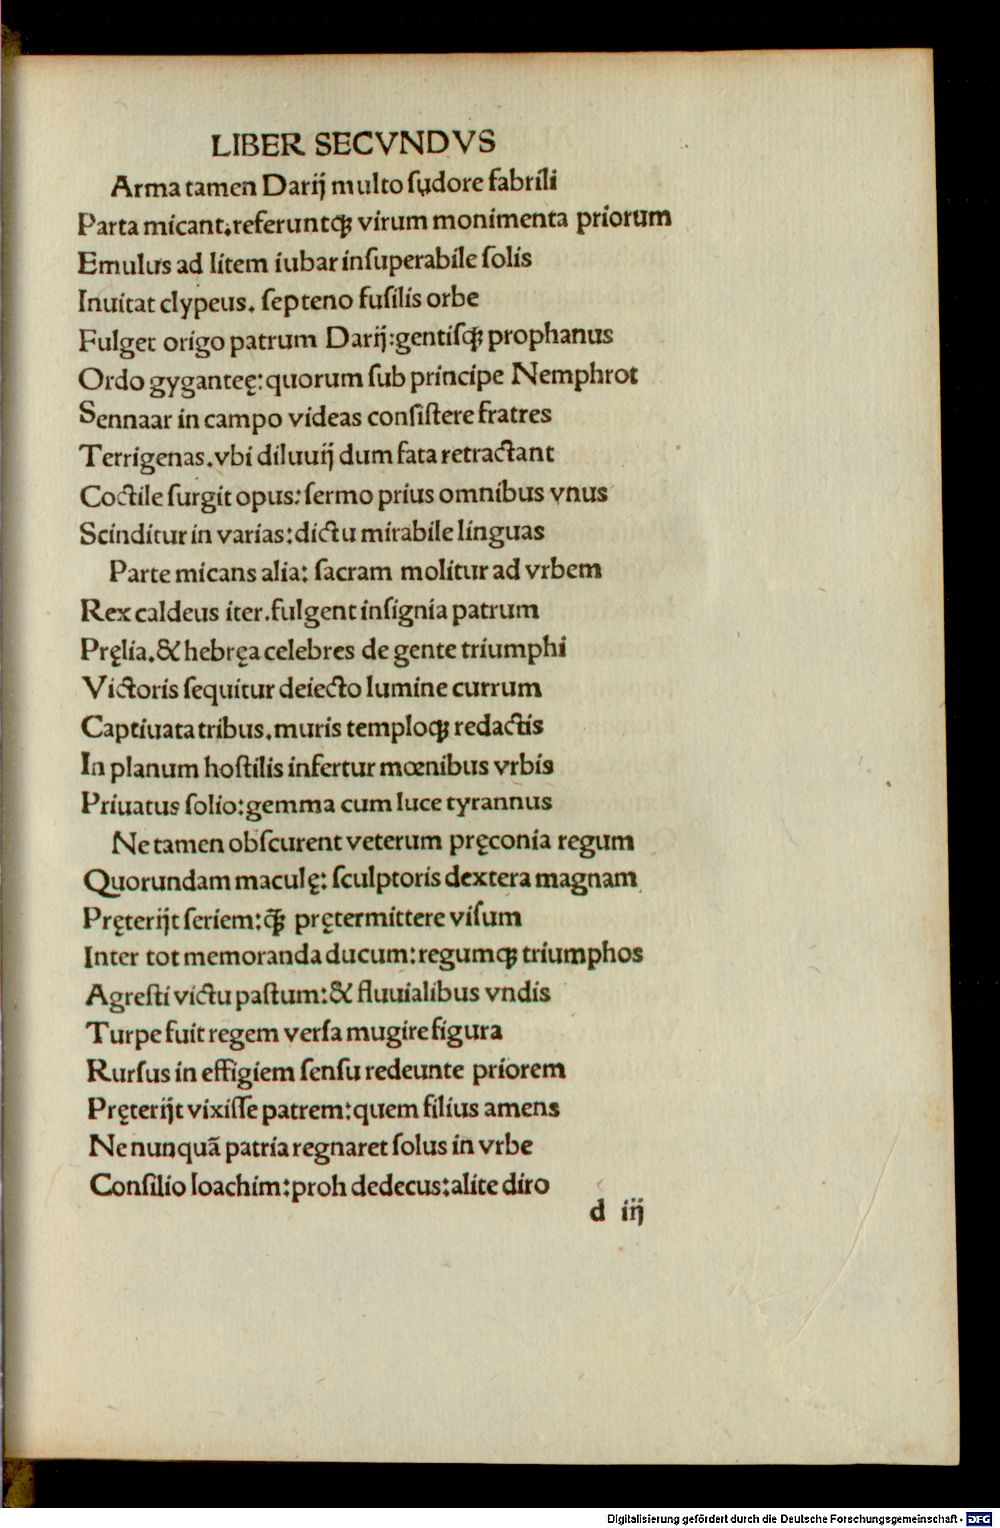 LIBER SECVNDVS
Arma tamen Darij multo ſudore fabrili
Parta micant.referuntqꝫ virum monimenta priorum
Emulus ad litem iubar inſuperabile ſolis
Inuitat clypeus. ſepteno fuſilis orbe
Fulget origo patrum Darij:gentiſqꝫ prophanus
Ordo gyganteę:quorum ſub principe Nemphrot
Sennaar in campo videas conſiſtere fratres
Terrigenas.vbi diluuij dum fata retractant
Coctile ſurgit opus:ſermo prius omnibus vnus
Scinditur in varias:dictu mirabile linguas
Parte micans alia: ſacram molitur ad vrbem
Rex caldeus iter.fulgent inſignia patrum
Pręlia.& hebręa celebres de gente triumphi
Victoris ſequitur deiecto lumine currum
Captiuata tribus.muris temploqꝫ redactis
In planum hoſtilis infertur mœnibus vrbis
Priuatus ſolio:gemma cum luce tyrannus
Ne tamen obſcurent veterum pręconia regum
Quorundam maculę: ſculptoris dextera magnam
Pręterijt ſeriem:q̃ꝫ prętermittere viſum
Inter tot memoranda ducum:regumqꝫ triumphos
Agreſti victu paſtum:& fluuialibus vndis
Turpe fuit regem verſa mugire figura
Rurſus in effigiem ſenſu redeunte priorem
Pręterijt vixiſſe patrem:quem filius amens
Ne nunquã patria regnaret ſolus in vrbe
Conſilio Ioachim:proh dedecus:alite diro
d iij
Digitalisierung gefördert durch die Deutsche Forschungsgemeinschaft - DFG